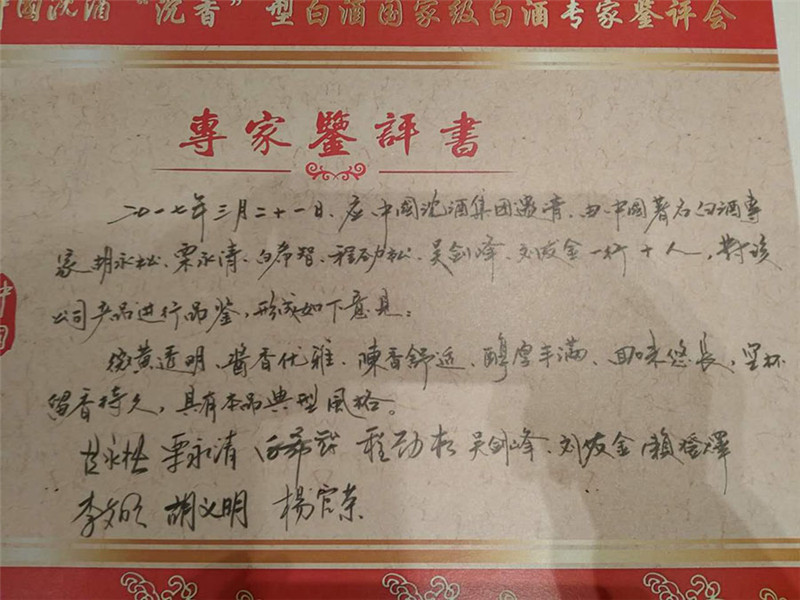 中国沈酒“沉香”型白酒国家级白酒专家鉴评会
專家鑒評書
二〇一七年三月二十一日、应中国沈酒集团邀请、由中国著名白酒專
家胡永松、栗永清、白希智、程劲松、吴剑峰、刘友金一行十人，對该
公司产品进行品鉴，形成如下意见：
微黄透明、醬香优雅、陳香舒适、醇厚丰满、回味悠长、空杯
留香持久，具有本品典型風格。
胡永松 栗永清 白希智 程劲松 吴剑峰、刘友金 賴登燡
李 胡义明 楊官荣
中国